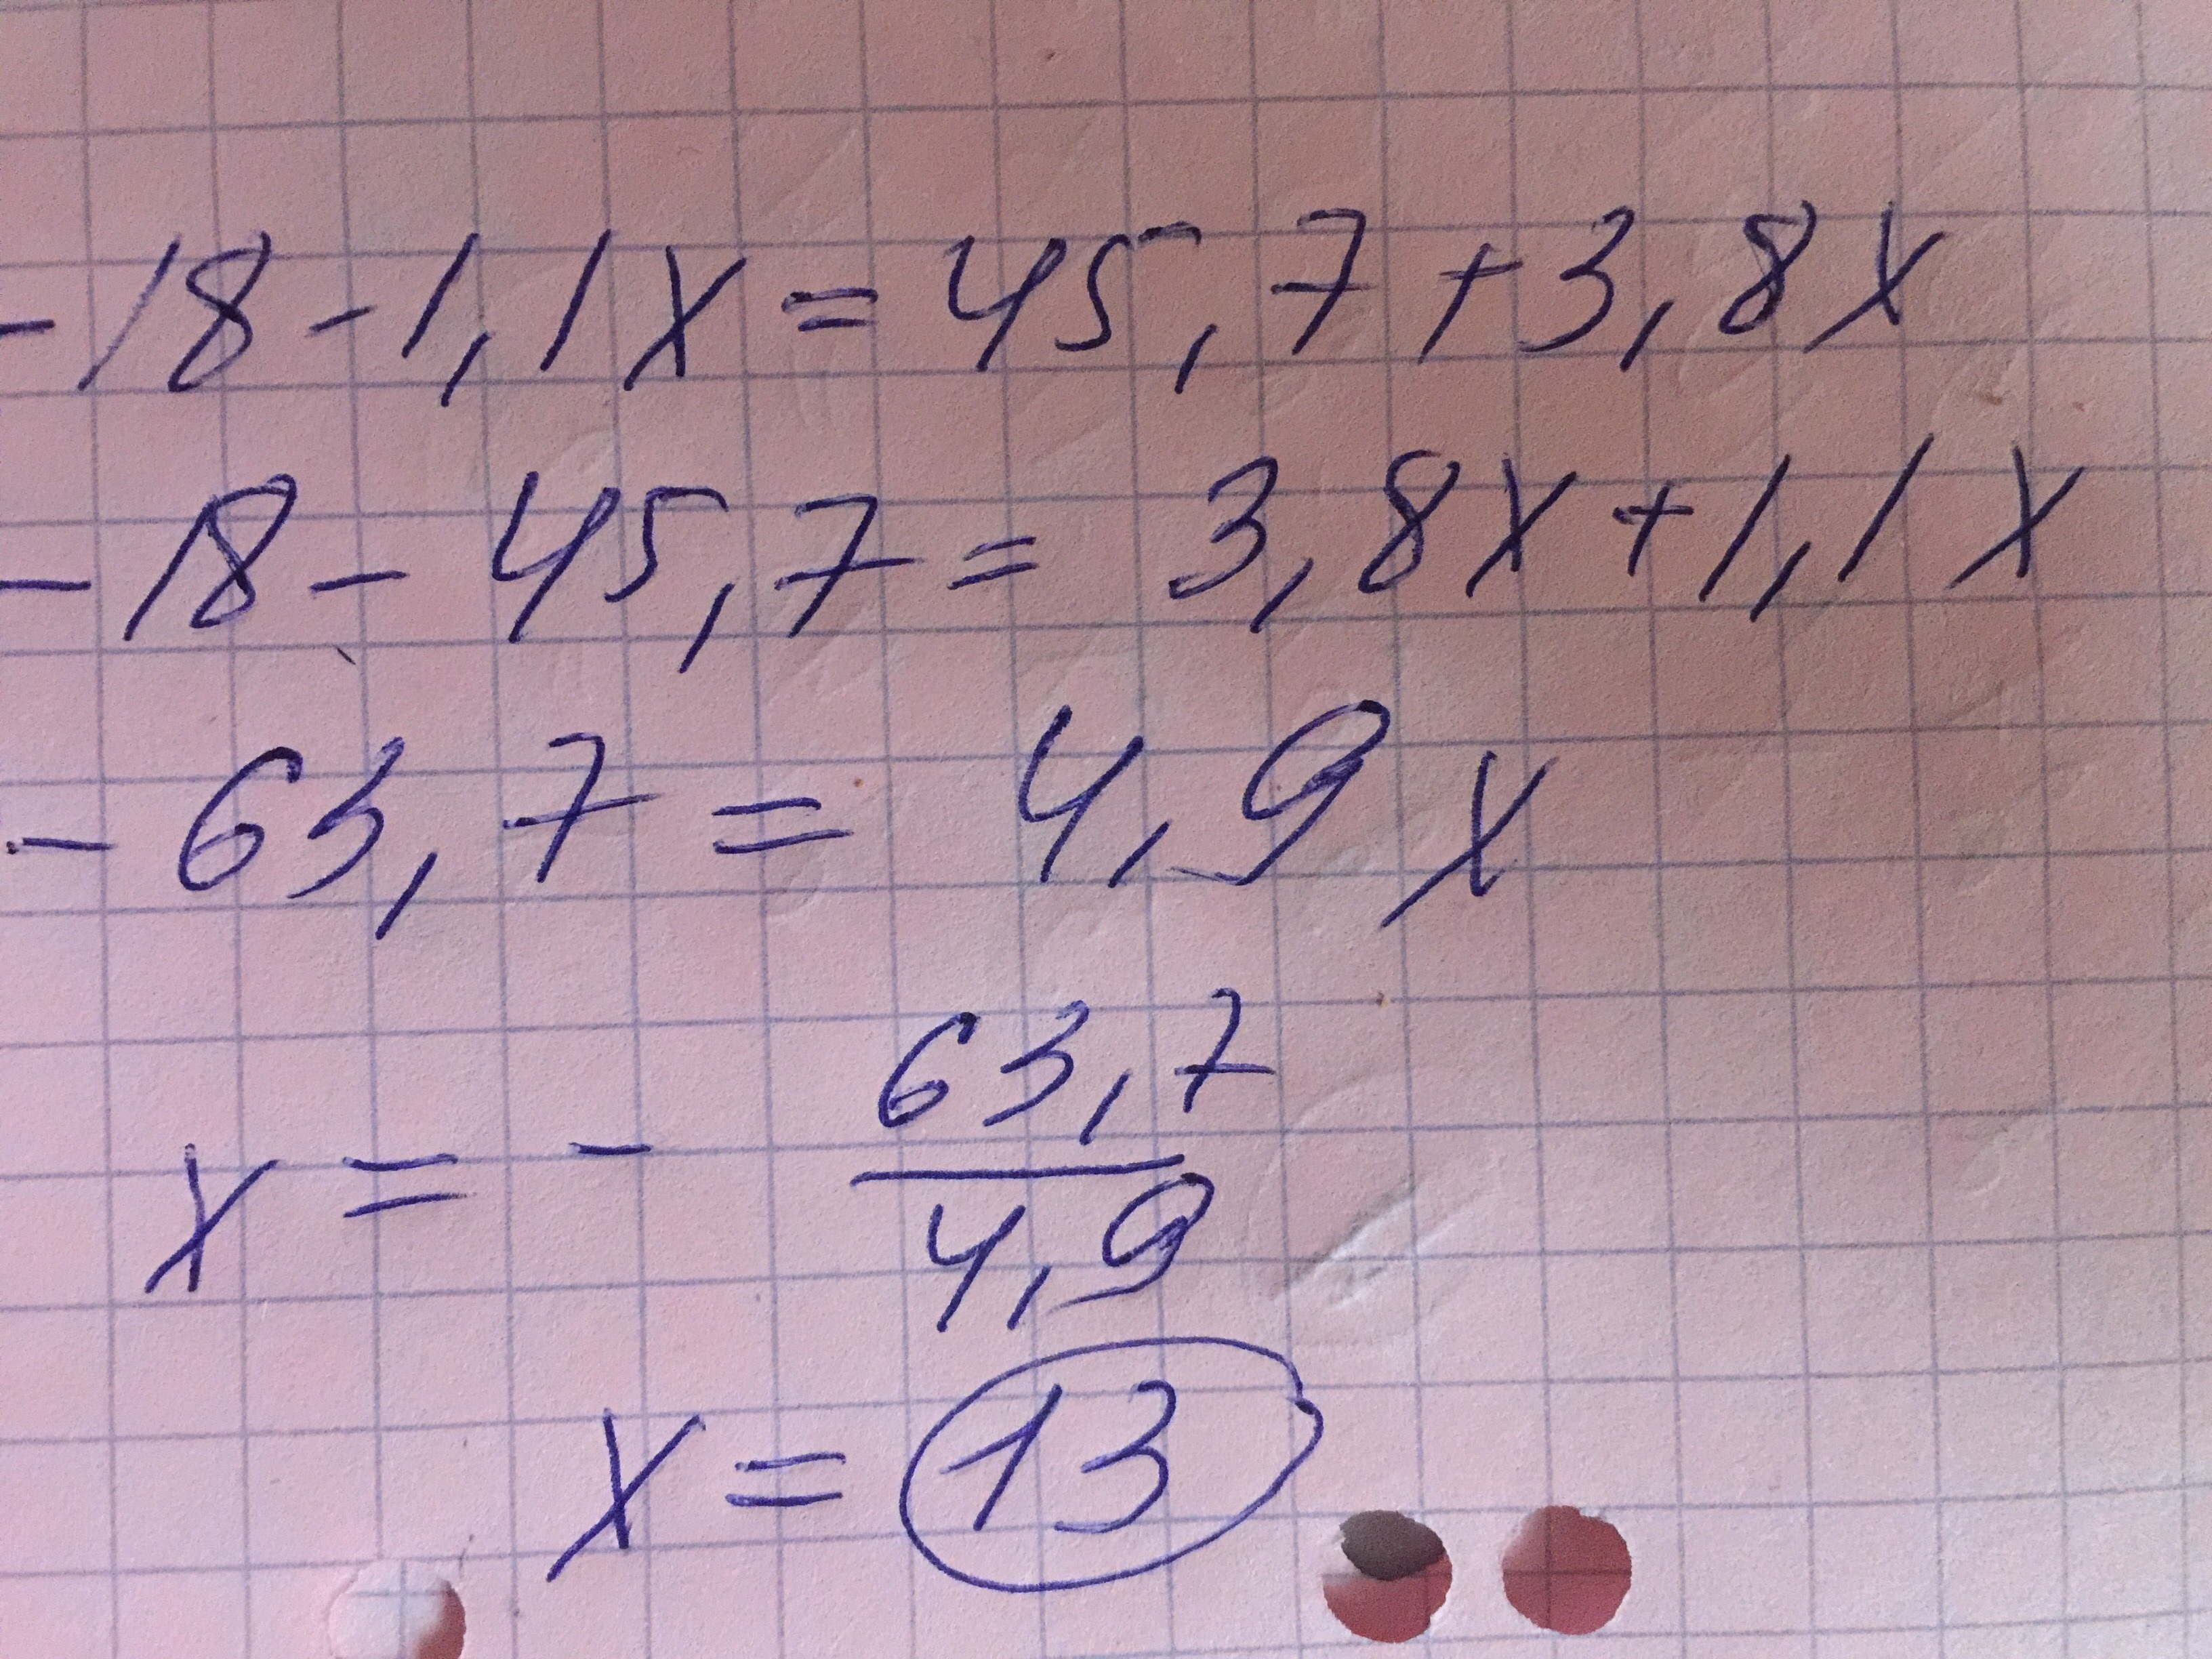 -18-1,1x=45,7+3,8x
-18-45,7=3,8x+1,1x
-63,7=4,9x
x=-63,7/4,9
x=13